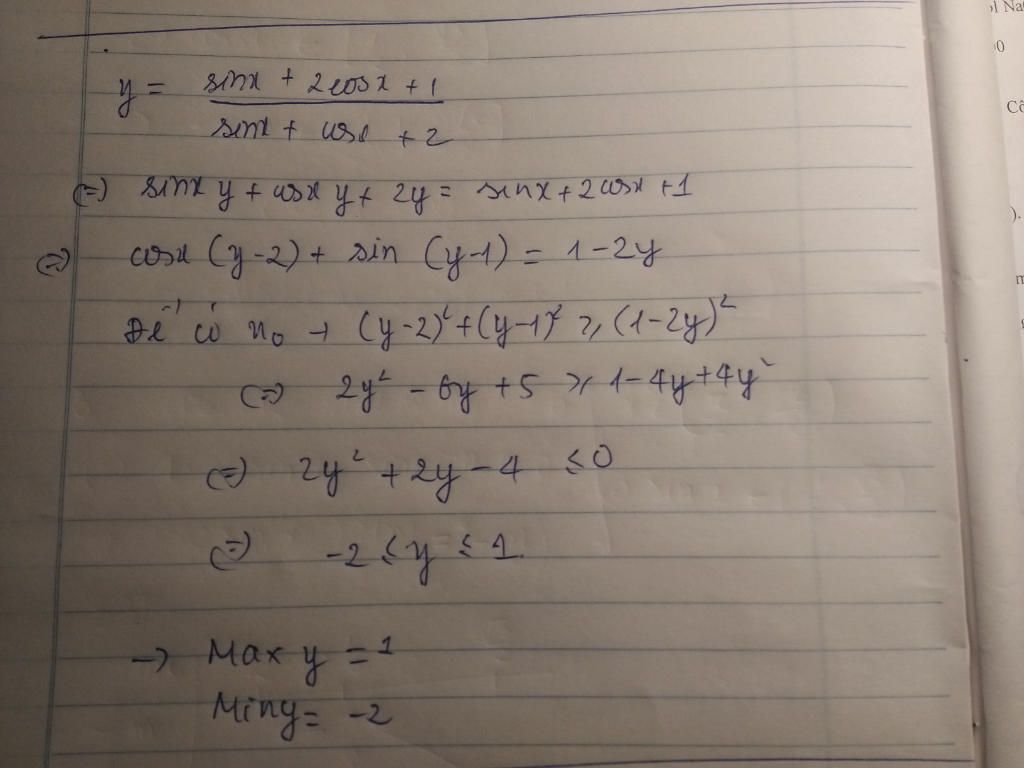 y = (sinx + 2cosx + 1) / (sinx + cosx + 2)
(=) sinx y + cosx y + 2y = sinx + 2cosx + 1
(=) cosx (y-2) + sin (y-1) = 1-2y
Để có n₀ → (y-2)² + (y-1)² ≥ (1-2y)²
(=) 2y² - 6y + 5 ≥ 1-4y+4y²
(=) 2y² + 2y - 4 ≤ 0
(=) -2 ≤ y ≤ 1
→ Max y = 1
Min y = -2